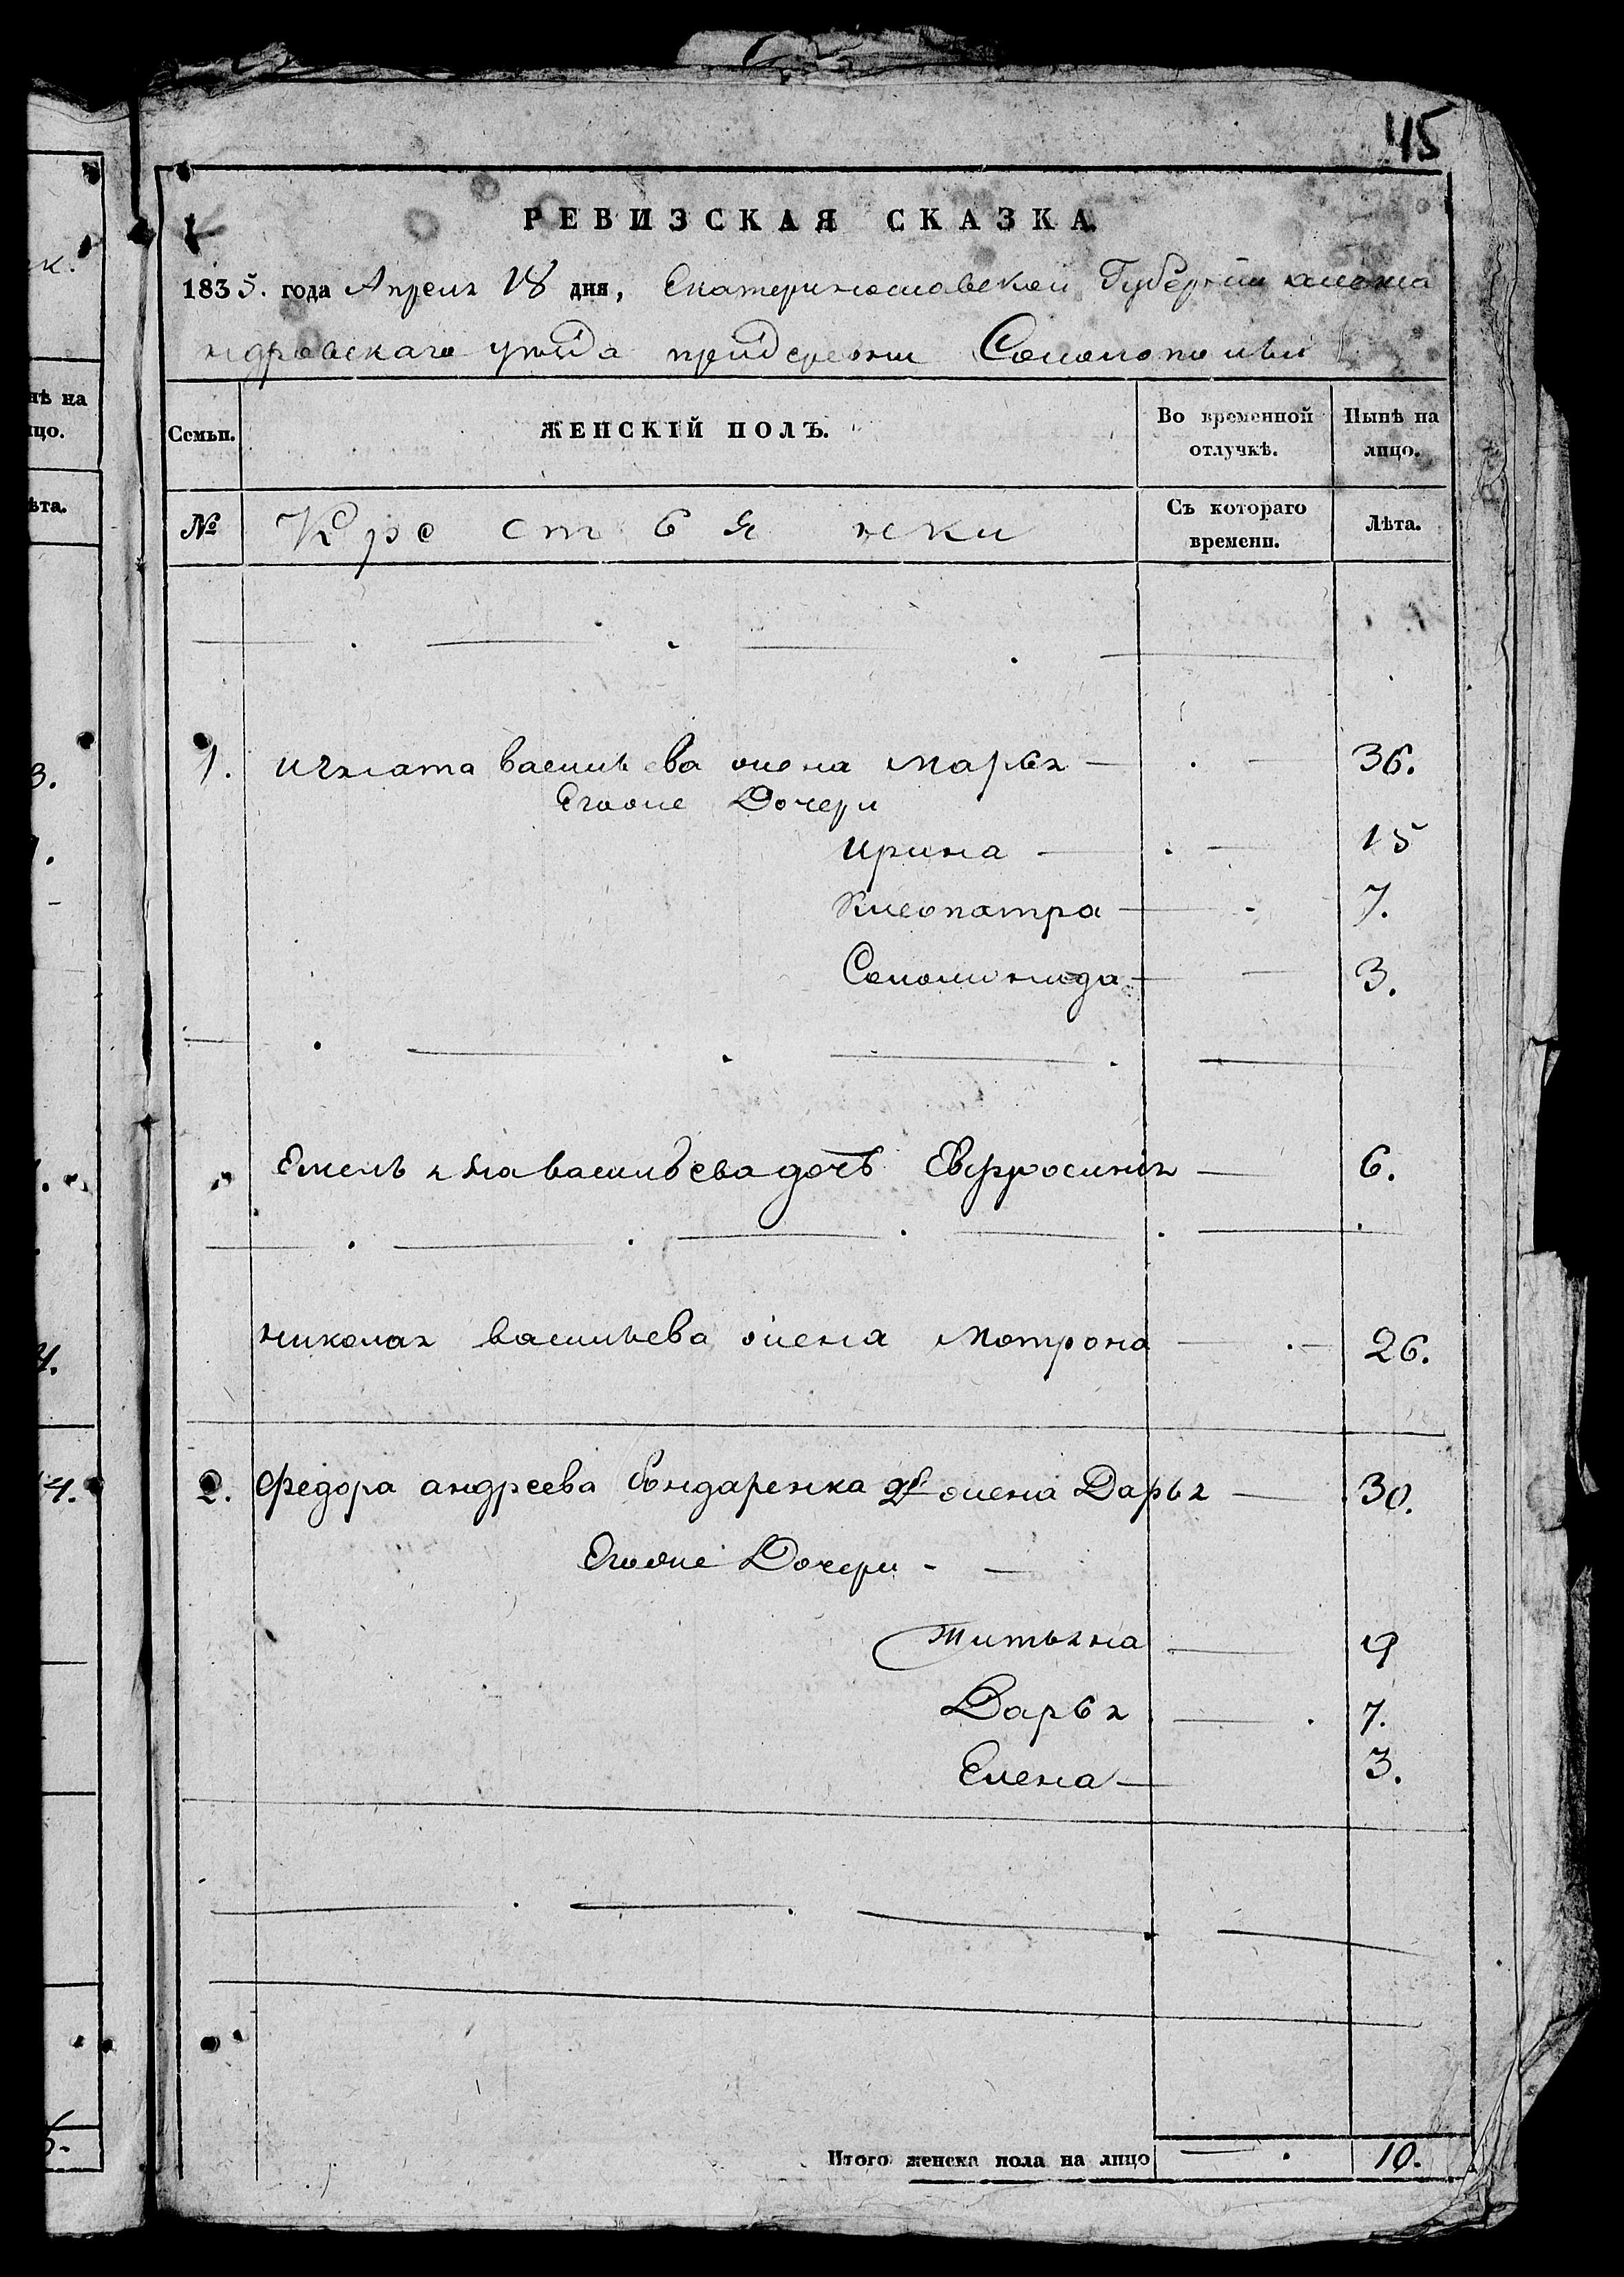 45
РЕВИЗСКАЯ СКАЗКА
1835. года Апреля 18 дня, Екатеринославской Губернии алекса
ндровскаго уезда
Семьи. ЖЕНСКІЙ ПОЛЪ. Во временной отлучкѣ. Нынѣ на лицо.
№ Крестьянки Съ котораго времени. Лѣта.
1. игната васильева жена марья — . — 36.
Егоже Дочери
ирина — . — 15
Клеопатра — . 7.
Соломинида — — 3.
Емельяна васильева дочь Евфросинья — 6.
николая васильева жена мотрона — . — 26.
2. федора андреева бондаренка 2я жена Дарья — 30.
Егоже Дочери - —
титьяна — 9
Дарья — . 7.
Елена — 3.
Итого женска пола на лицо — . 10.
нѣ на
цо.
ѣта.
3.
4.